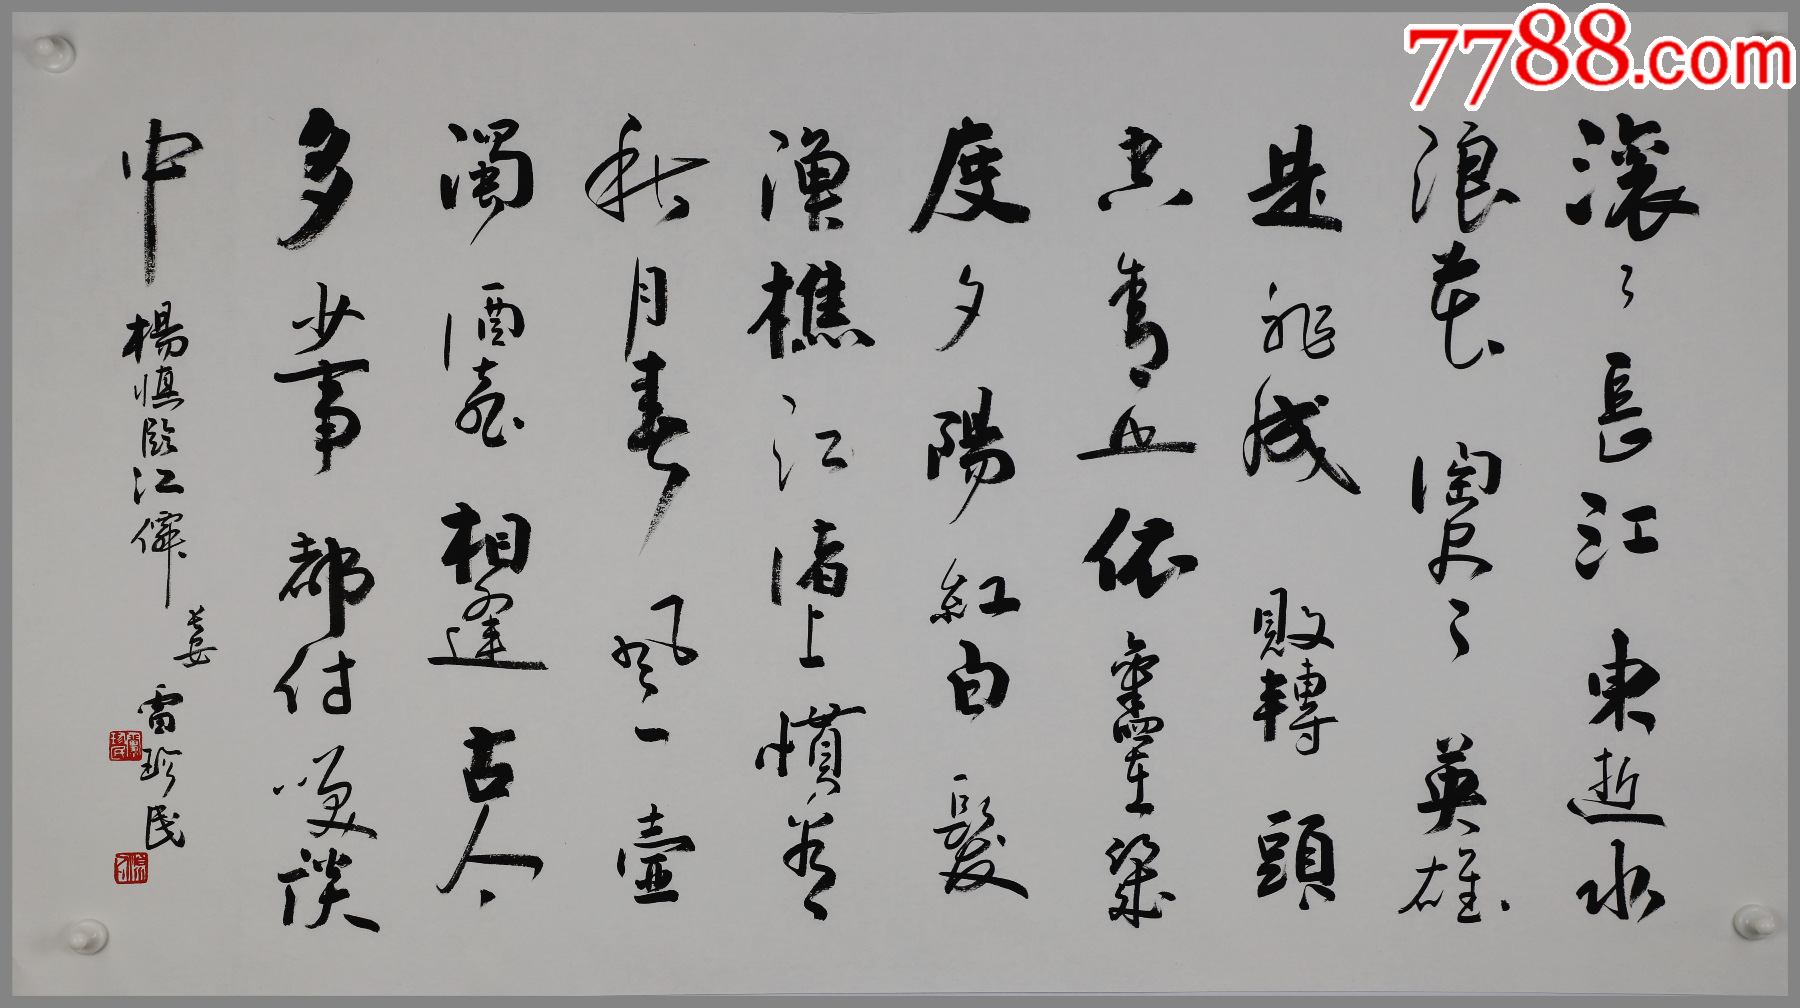 7788.com
滚〻長江東逝水
浪花淘尽英雄
是非成敗轉頭
空青山依舊在幾
度夕陽紅白髮
漁樵江渚上慣看
秋月春風一壺
濁酒喜相逢古今
多少事都付笑談
中
楊慎臨江僊
長安
雷珍民